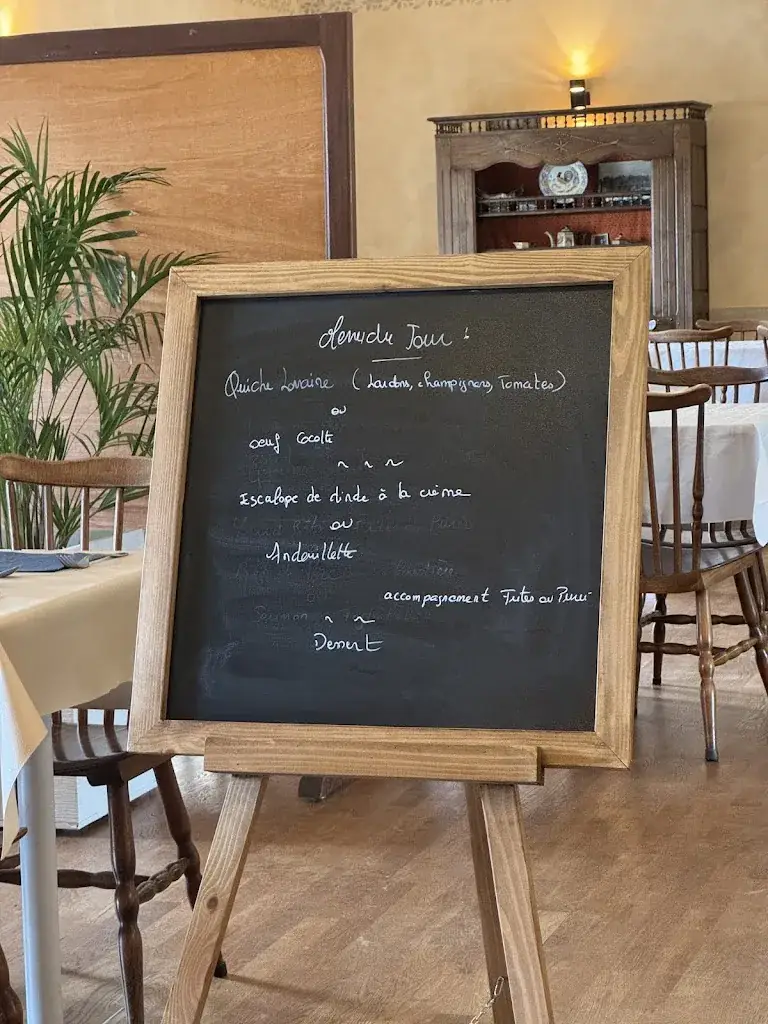 Menu du Jour :
Quiche Lorraine (Lardons, champignons, Tomates)
ou
oeuf Cocotte
~ ~ ~
Escalope de dinde à la crème
ou
Andouillette
accompagnement Frites ou Purée
~ ~
Dessert